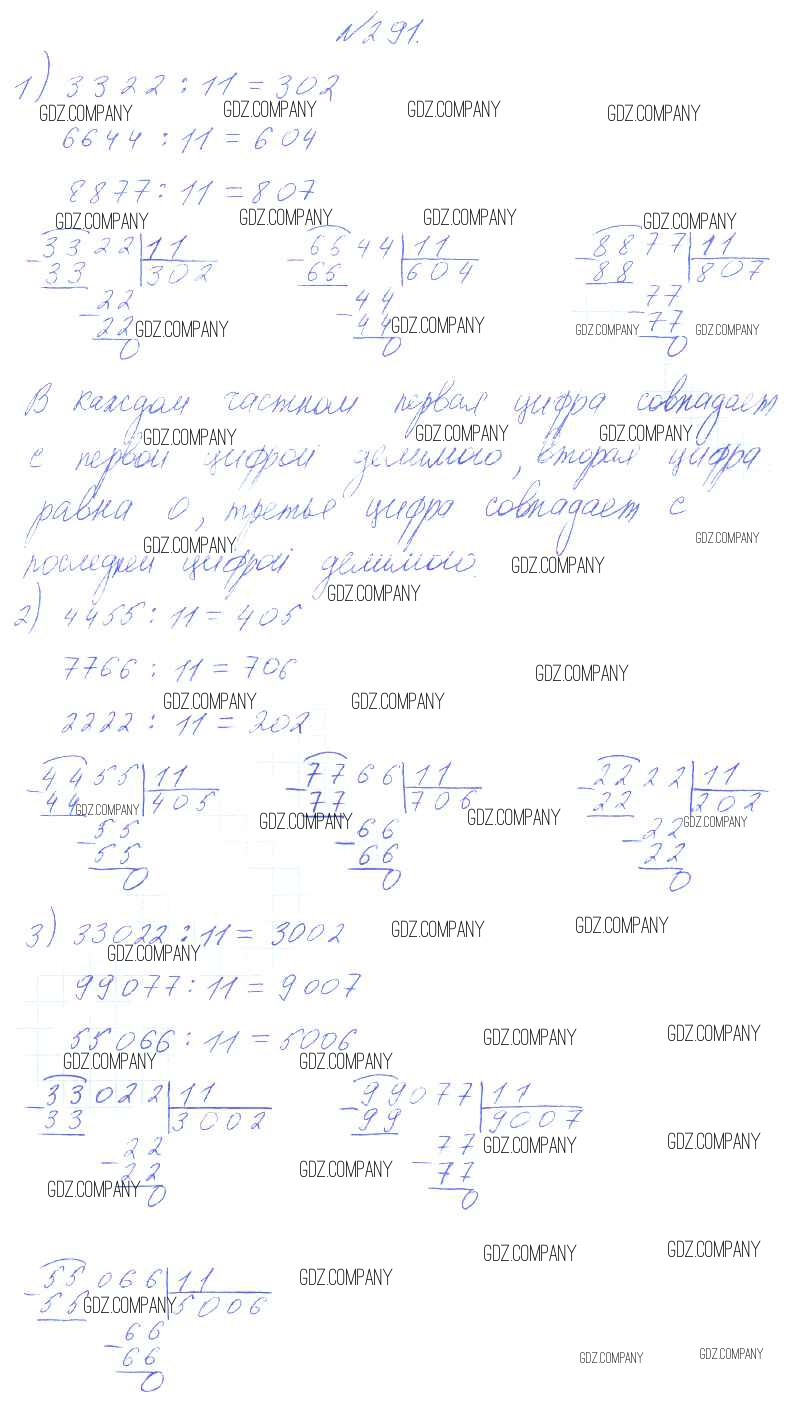 №291.
1) 3322 : 11 = 302
GDZ.COMPANY GDZ.COMPANY GDZ.COMPANY GDZ.COMPANY
6644 : 11 = 604
8877 : 11 = 807
GDZ.COMPANY GDZ.COMPANY GDZ.COMPANY GDZ.COMPANY
3322 | 11 6644 | 11 8877 | 11
-33 302 -66 604 -88 807
-22 -44 -77
22 GDZ.COMPANY 44 GDZ.COMPANY GDZ.COMPANY 77 GDZ.COMPANY
0 0 0
В каждом частном первая цифра совпадает
GDZ.COMPANY GDZ.COMPANY GDZ.COMPANY
с первой цифрой делимого, вторая цифра
равна 0, третье цифра совпадает с
GDZ.COMPANY GDZ.COMPANY
последней цифрой делимого. GDZ.COMPANY
GDZ.COMPANY
2) 4455 : 11 = 405
7766 : 11 = 706 GDZ.COMPANY
GDZ.COMPANY GDZ.COMPANY
2222 : 11 = 202
4455 | 11 7766 | 11 2222 | 11
-44 405 -77 706 -22 202
GDZ.COMPANY GDZ.COMPANY GDZ.COMPANY GDZ.COMPANY
-55 -66 -22
55 66 22
0 0 0
3) 33022 : 11 = 3002 GDZ.COMPANY GDZ.COMPANY
GDZ.COMPANY
99077 : 11 = 9007
55066 : 11 = 5006 GDZ.COMPANY GDZ.COMPANY
GDZ.COMPANY GDZ.COMPANY
33022 | 11 99077 | 11
-33 3002 -99 9007
-22 -77 GDZ.COMPANY GDZ.COMPANY
22 GDZ.COMPANY 77
GDZ.COMPANY 0 0
GDZ.COMPANY GDZ.COMPANY
55066 | 11 GDZ.COMPANY
-55 GDZ.COMPANY 5006
-66
66 GDZ.COMPANY GDZ.COMPANY
0